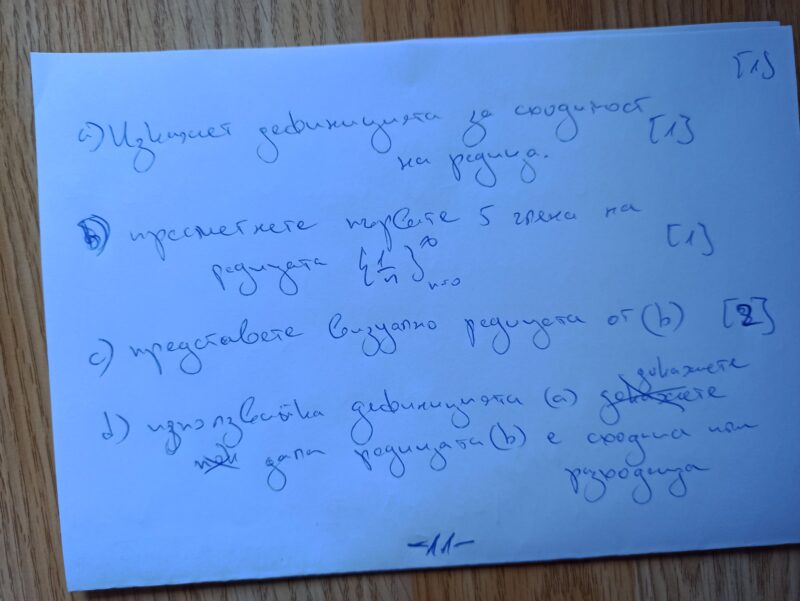 [1]
a) Изкажет дефиницията за сходимост [1]
на редица.
b) пресметнете първите 5 члена на
редицата {1/n}∞n=0 [1]
c) представете визуално редицата от (b) [2]
докажете
d) използвайка дефиницията (a) докажете
дали редицата (b) е сходна или
разходища
-11-